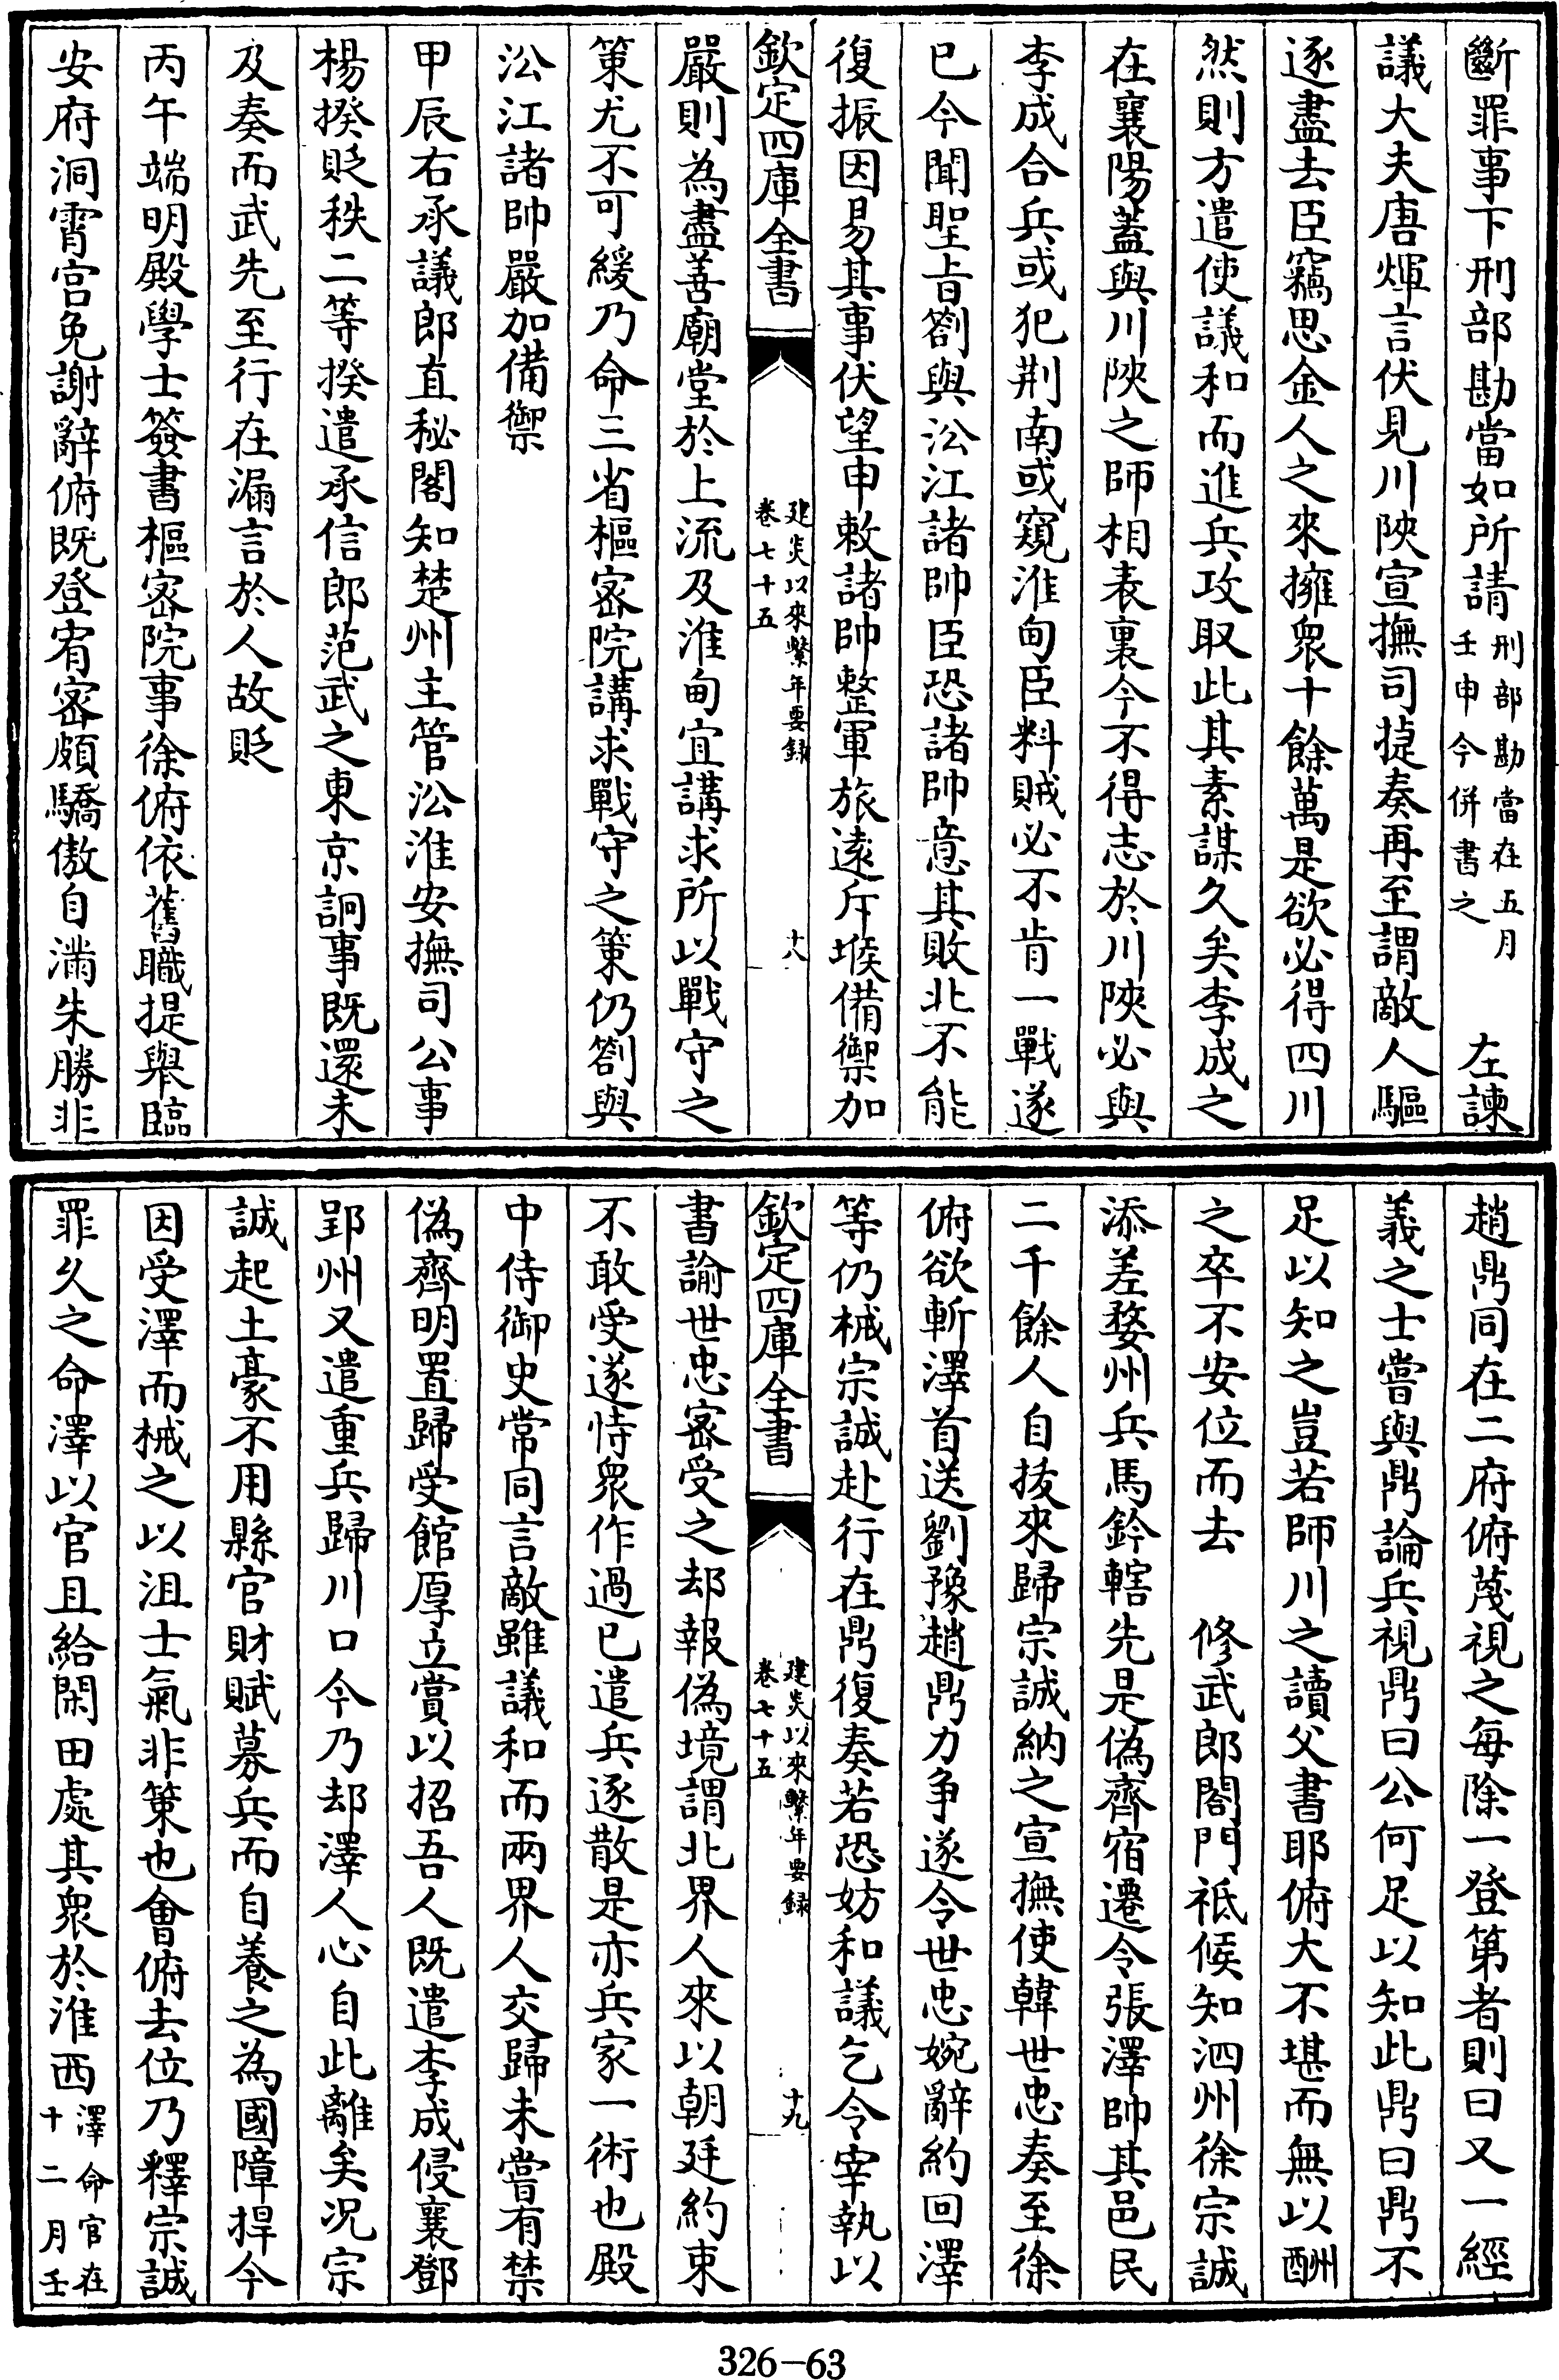 斷罪事下刑部勘當如所請刑部勘當在五月壬申今併書之　左諫
議大夫唐煇言伏見川陜宣撫司捷奏再至謂敵人驅
逐盡去臣竊思金人之來擁衆十餘萬是欲必得四川
然則方遣使議和而進兵攻取此其素謀久矣李成之
在襄陽蓋與川陜之師相表裏今不得志於川陜必與
李成合兵或犯荆南或窺淮甸臣料賊必不肯一戰遂
已今聞聖旨劄與㳂江諸帥臣恐諸帥意其敗北不能
復振因易其事伏望申敕諸帥整軍旅遠斥堠備禦加
欽定四庫全書　建炎以來繫年要録　卷七十五　十八
嚴則為盡善廟堂於上流及淮甸宜講求所以戰守之
策尤不可緩乃命三省樞密院講求戰守之策仍劄與
㳂江諸帥嚴加備禦
甲辰右承議郎直秘閣知楚州主管㳂淮安撫司公事
楊揆貶秩二等揆遣承信郎范武之東京詗事既還未
及奏而武先至行在漏言於人故貶
丙午端明殿學士簽書樞密院事徐俯依舊職提舉臨
安府洞霄宫免謝辭俯既登宥密頗驕傲自滿朱勝非
趙鼎同在二府俯蔑視之每除一登第者則曰又一經
義之士嘗與鼎論兵視鼎曰公何足以知此鼎曰鼎不
足以知之豈若師川之讀父書耶俯大不堪而無以酬
之卒不安位而去　修武郎閤門祗候知泗州徐宗誠
添差婺州兵馬鈐轄先是偽齊宿遷令張澤帥其邑民
二千餘人自拔來歸宗誠納之宣撫使韓世忠奏至徐
俯欲斬澤首送劉豫趙鼎力争遂令世忠婉辭約回澤
等仍械宗誠赴行在鼎復奏若恐妨和議乞令宰執以
欽定四庫全書　建炎以來繫年要録　卷七十五　十九
書諭世忠密受之却報偽境謂北界人來以朝廷約束
不敢受遂恃衆作過已遣兵逐散是亦兵家一術也殿
中侍御史常同言敵雖議和而兩界人交歸未嘗有禁
偽齊明置歸受館厚立賞以招吾人既遣李成侵襄鄧
郢州又遣重兵歸川口今乃却澤人心自此離矣况宗
誠起土豪不用縣官財賦募兵而自養之為國障捍今
因受澤而械之以沮士氣非策也會俯去位乃釋宗誠
罪久之命澤以官且給閑田處其衆於淮西澤命官在十二月壬
326-63